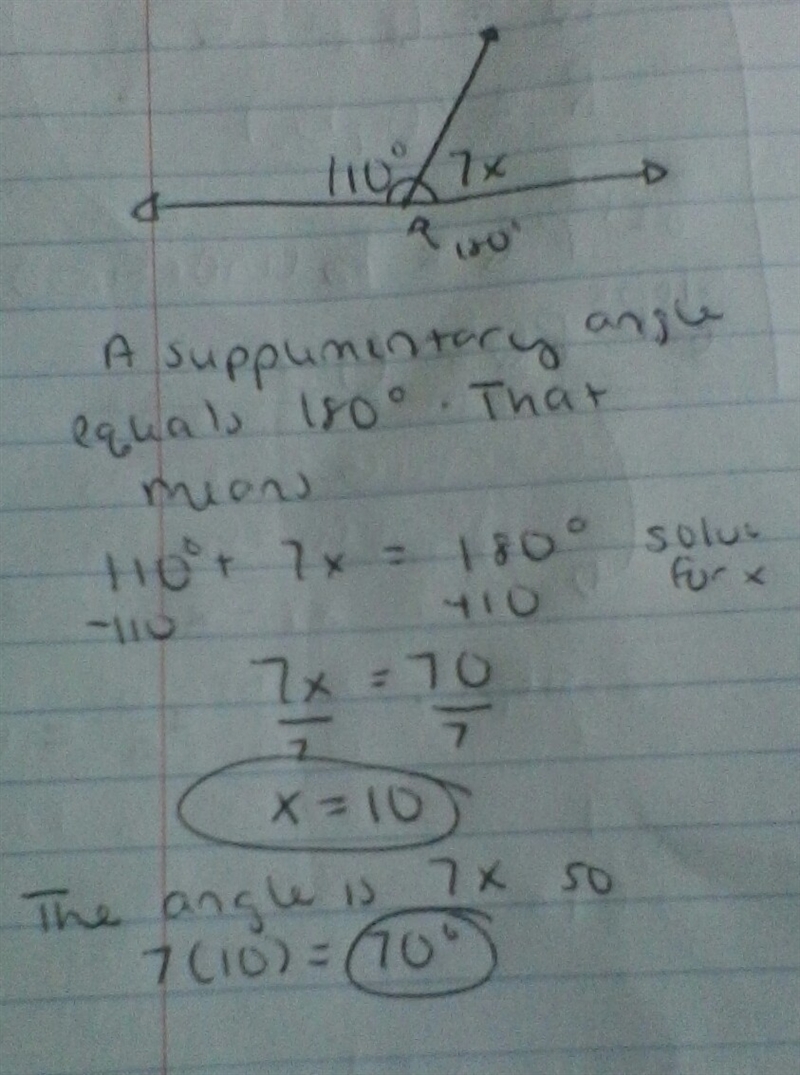 110° 7x
180°
A supplumentary angle
equals 180°. That
means
110° + 7x = 180° solve
for x
-110 -110
7x = 70
7 7
x = 10
The angle is 7x so
7(10) = 70°